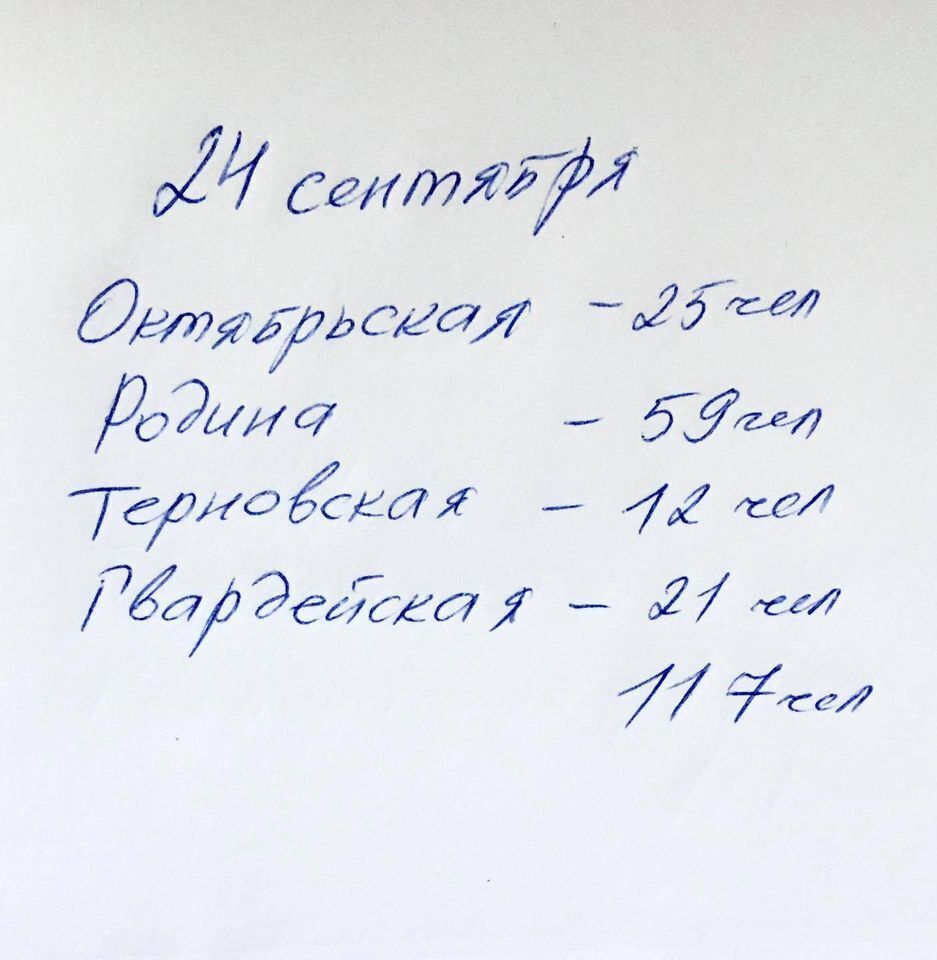 24 сентября
Октябрьская - 25 чел
Родина - 59 чел
Терновская - 12 чел
Гвардейская - 21 чел
117 чел